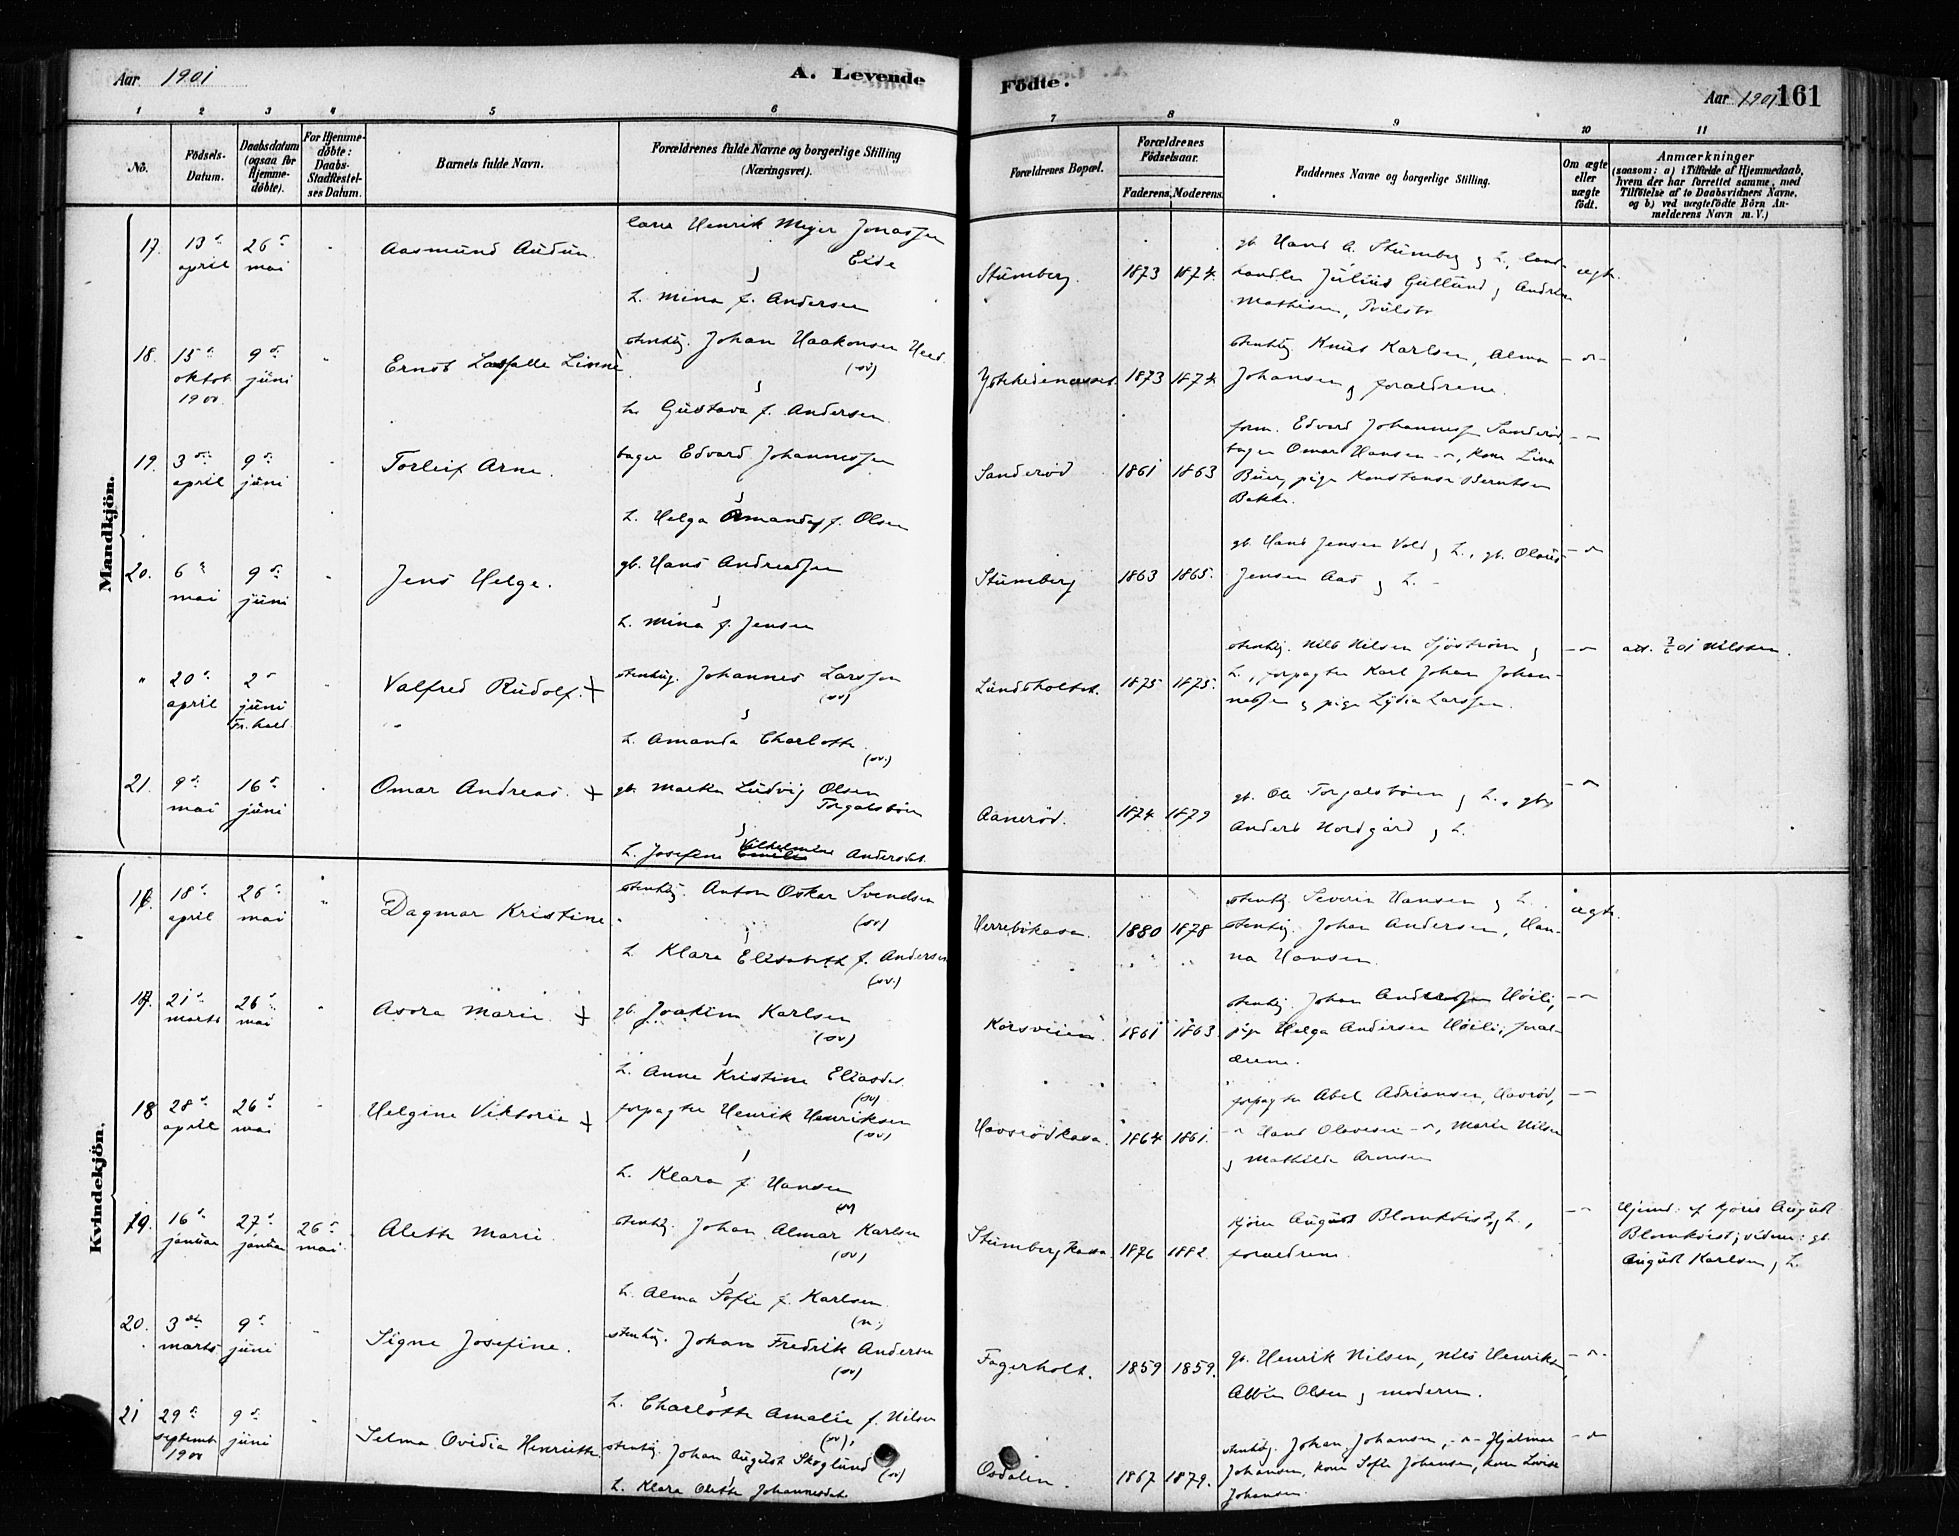 Aar 1901
A. Levende
Födte.
Aar 1901 161
1 2 3 4 5 6 7 8 9 10 11
No.
Födsels-Datum.
Daabsdatum (ogsaa for Hjemmedöbte).
For Hjemmedöbte: Daabs-Stadfestelses Datum.
Barnets fulde Navn.
Forældrenes fulde Navne og borgerlige Stilling (Næringsvei).
Forældrenes Bopæl.
Forældrenes Födselsaar.
Faderens. Moderens.
Faddernes Navne og borgerlige Stilling.
Om ægte eller uægte födt.
Anmærkninger
(saasom: a) i Tilfælde af Hjemmedaab, hvem der har forrettet samme, med Tilföielse af to Daabsvidners Navne, og b) ved uægtefödte Börn Anmelderens Navn m. V.)
Mandkjön.
17. 13 april 26 mai Aasmund Audun.
Henrik Meyer Jonassen Eide
L. Mina f. Andersen
Stumberg 1873 1874
gb. Hans A. Stumberg og L., landhandler Julius Gullund, Andrine Mathisen, ægt.
18. 15 oktob. 1900 9 juni Ernst Lasalle Linné
stenhug. Johan Haakonsen (sv)
L. Gustava f. Andersen
1873 1874
stenhug. Knut Karlsen, Alma Johansen og forældrene.
19. 3 april 9 juni Torleif Arne.
bager Edvard Johannessen
L. Helga Amanda f. Olsen
Sanderød 1861 1863
form. Edvard Johannessen Sanderød
bager Omar Hansen, kone Lina Buer, pige Konstanse Berntsen Bakke.
20. 6 mai 9 juni Jens Helge.
gb. Hans Andreassen
L. Mina f. Jensen
Stumberg 1863 1865.
gb. Hans Jensen Vold og L., gb. Olaus Jensen Aas og L.
" 20 april 2 juni Fr.hald Valfred Rudolf. +
stenhug. Johannes Larssen (sv)
L. Amanda Charlotte (sv.)
Lundsholtet. 1875 1875.
stenhug. Nils Nilsen Sjöström og L., forpagter Karl Johan Johannessen og pige Lydia Larssen.
att. 7/6 01 Nilssen.
21. 9 mai 16 juni Omar Andreas. +
gb. Martin Ludvig Olsen Torgalsbøen
L. Josefine Vilhelmine Andersdat.
Aanerød. 1874 1879
gb. Ole Torgalsbøen og L., gb. Anders Nordgård og L.
Kvindekjön.
16. 18 april 26 mai Dagmar Kristine
stenhug. Anton Oskar Svendsen (sv)
L. Klara Elisabeth f. Andersen (sv.)
Herrebökasa. 1880 1878
stenhug. Severin Hansen og L. stenhug. Johan Andersen, Hanna Hansen. ægt.
17. 21 marts 26 mai Asora Marie. +
gb. Joakim Karlsen (sv)
L. Anne Kristine Eliasdat. (sv)
Korsveien 1861 1863
stenhug. Johan Anderssen Höili, pige Helga Andersen Höili, forældrene.
18 28 april 26 mai Helgine Viktoria +
forpagter Henrik Henriksen (sv)
L. Klara f. Hansen (sv)
Havsrödkasa. 1864 1861.
forpagter Abel Adriansen, Havsröd, Hans Olavesen, Marie Nilsen og Mathilde Aronsen
19. 16 januar 27 januar 26 mai Alette Marie.
stenhug. Johan Almar Karlsen (sv)
L. Alma Sofie f. Karlsen (n.)
Stumbergkasa. 1876 1882.
kjörer August Blomkvist og L., forældrene.
Hjemd. af kjörer August Blomkvist; vidner: gb. August Karlsen og L.
20. 3 marts 9 juni Signe Josefine.
stenhug. Johan Fredrik Andersen (sv)
L. Charlotte Amalie f. Nilsen (sv),
Fagerholt. 1859 1859.
gb. Henrik Nilsen, Nils Henriksen, Albin Olsen og moderen.
21 29 septemb. 1900 9 juni Selma Ovidia Henriette
stenhug. Johan August Skoglund (sv)
L. Klara Olette Johannesdat.
Osdalen. 1867 1879.
stenhug. Johan Johansen, Hjalmar Johansen, kone Sofie Johansen, kone Lovise Johansen.